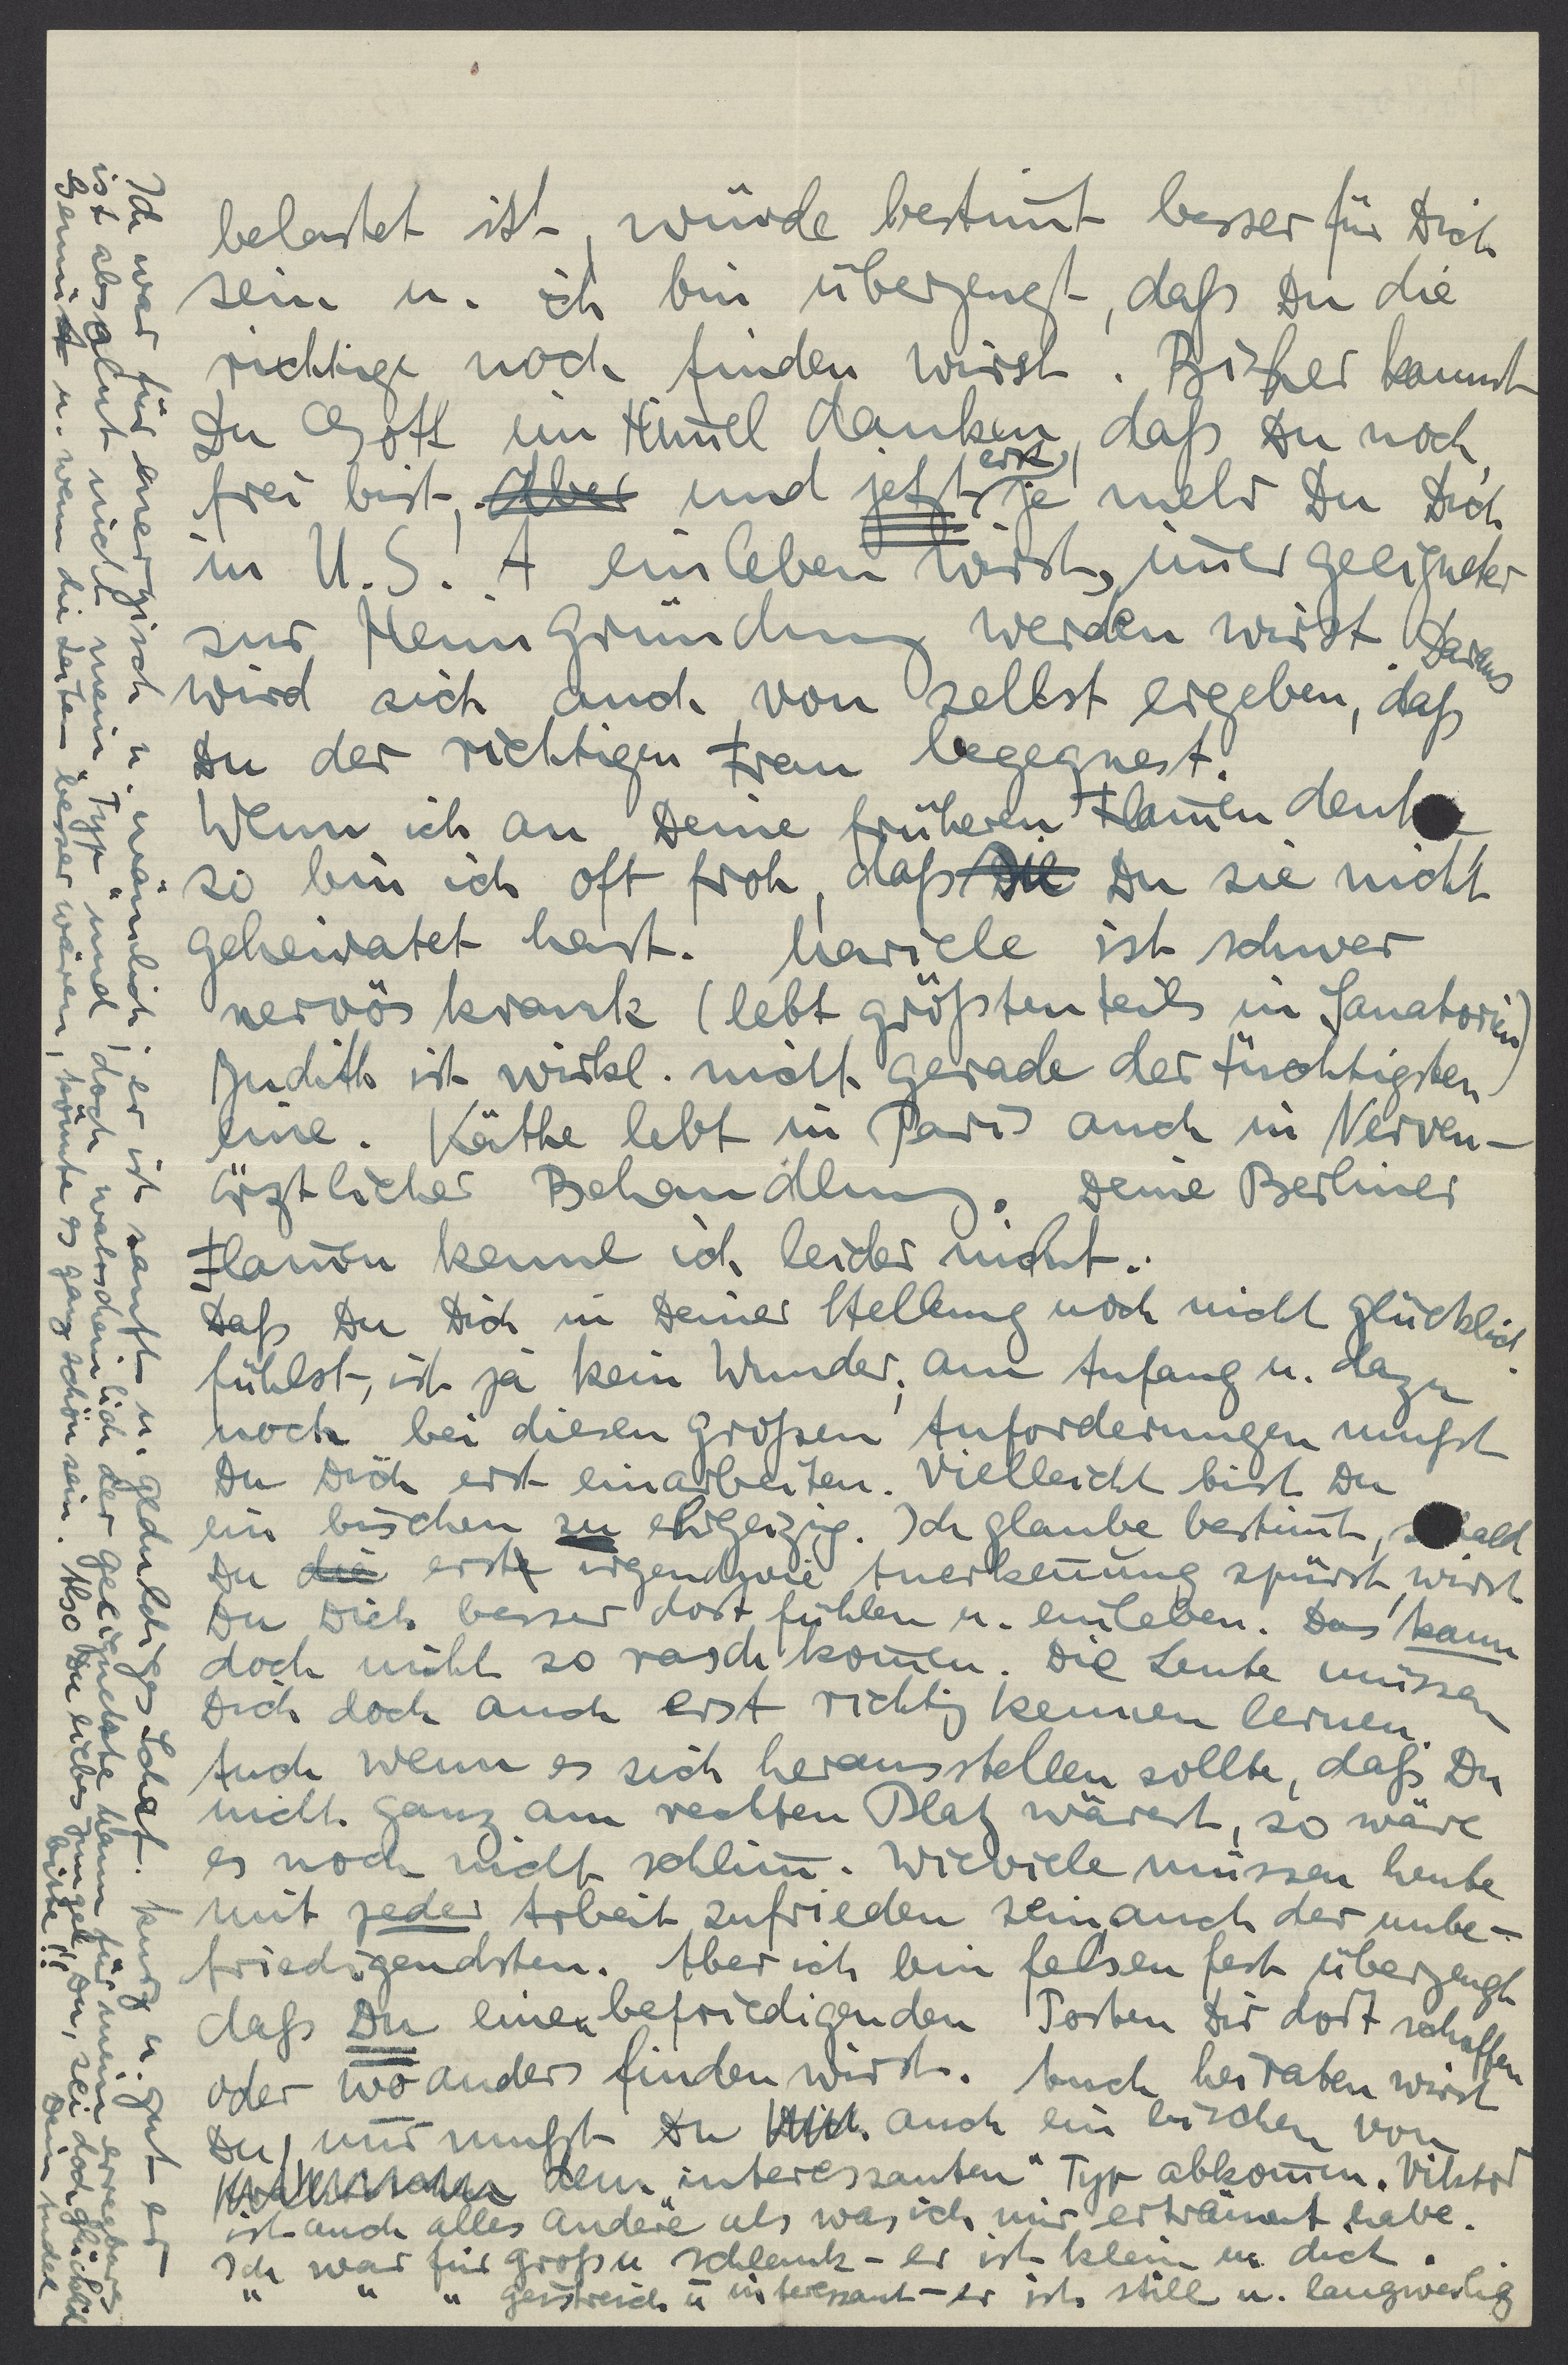 belastet ist, würde bestim̅t besser für Dich
sein u. ich bin überzeugt, daß Du die
richtige noch finden wirst. Bisher kannst
Du Gott im Him̅el danken, daß Du noch
frei bist, ~~Aber~~ und jetzt erst, je mehr Du Dich
in U.S.A einleben wirst, im̅er geeigneter
zur Heimgründung werden wirst. Daraus
wird sich auch von selbst ergeben, daß
Du der richtigen Frau begegnest.
Wenn ich an Deine früheren Flam̅en denke
so bin ich oft froh, daß ~~Die~~ Du sie nicht
geheiratet hast. Mariele ist schwer
nervös krank (lebt größtenteils in Sanatorien)
Judith ist wirkl. nicht gerade der tüchtigsten
eine. Käthe lebt in Paris auch in Nerven-
ärztlicher Behandlung. Deine Berliner
Flam̅en kenne ich leider nicht.
Daß Du Dich in Deiner Stellung noch nicht glücklich
fühlst, ist ja kein Wunder, am Anfang u. dazu
noch bei diesen großen Anforderungen mußt
Du Dich erst einarbeiten. Vielleicht bist Du
ein bischen zu ehrgeizig. Ich glaube bestim̅t, sobald
Du ~~die~~ erst irgendwie Anerken̅ung spürst, wirst
Du Dich besser dort fühlen u. einleben. Das kann
doch nicht so rasch kom̅en. Die Leute müssen
Dich doch auch erst richtig kennen lernen.
Auch wenn es sich herausstellen sollte, daß Du
nicht ganz am rechten Platz wärest, so wäre
es noch nicht schlim̅. Wieviele müssen heute
mit jeder Arbeit zufrieden sein, auch der unbe-
friedigendsten. Aber ich bin felsenfest überzeugt
daß Du einen befriedigenden Posten Dir dort schaffen
oder wo anders finden wirst. Auch heiraten wirst
Du, nur mußt Du auch ein bischen von
dem „interessanten" Typ abkom̅en. Viktor
ist auch alles andere als was ich mir erträumt habe.
Ich war für groß u schlank - er ist klein u. dick.
" " " geistreich u interessant - er ist still u. langweilig
Ich war für energisch u. männlich; er ist sanft u. geduldiges Schaf. Kurz u. gut er
ist absolut nicht mein „Typ" und doch wahrscheinlich der geeignetste Mann für mein erregbares
Gemüt u. wenn die Zeiten besser wären, könnte es ganz schön sein. Also Du liebes Jungele Du, sei doch glücklich
bitte!!
Dein Mädel